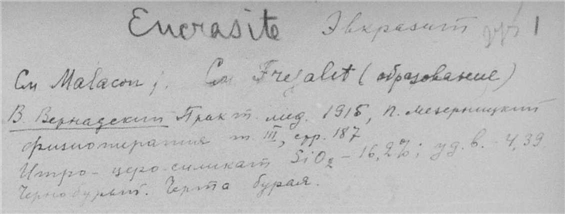 Eucrasite Эвкразит 1
См Malacon; См Freyalit (образование)
В. Вернадский Практ. мед. 1915, П. Мезерницкий
физиотерапия т III, стр. 187
Итро-церо-силикат SiO2 - 16,2%; уд. в. - 4,39
Чернобурый. Черта бурая.